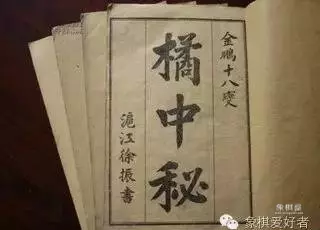 金鹏十八變
橘中秘
滬江徐振書
象棋爱好者